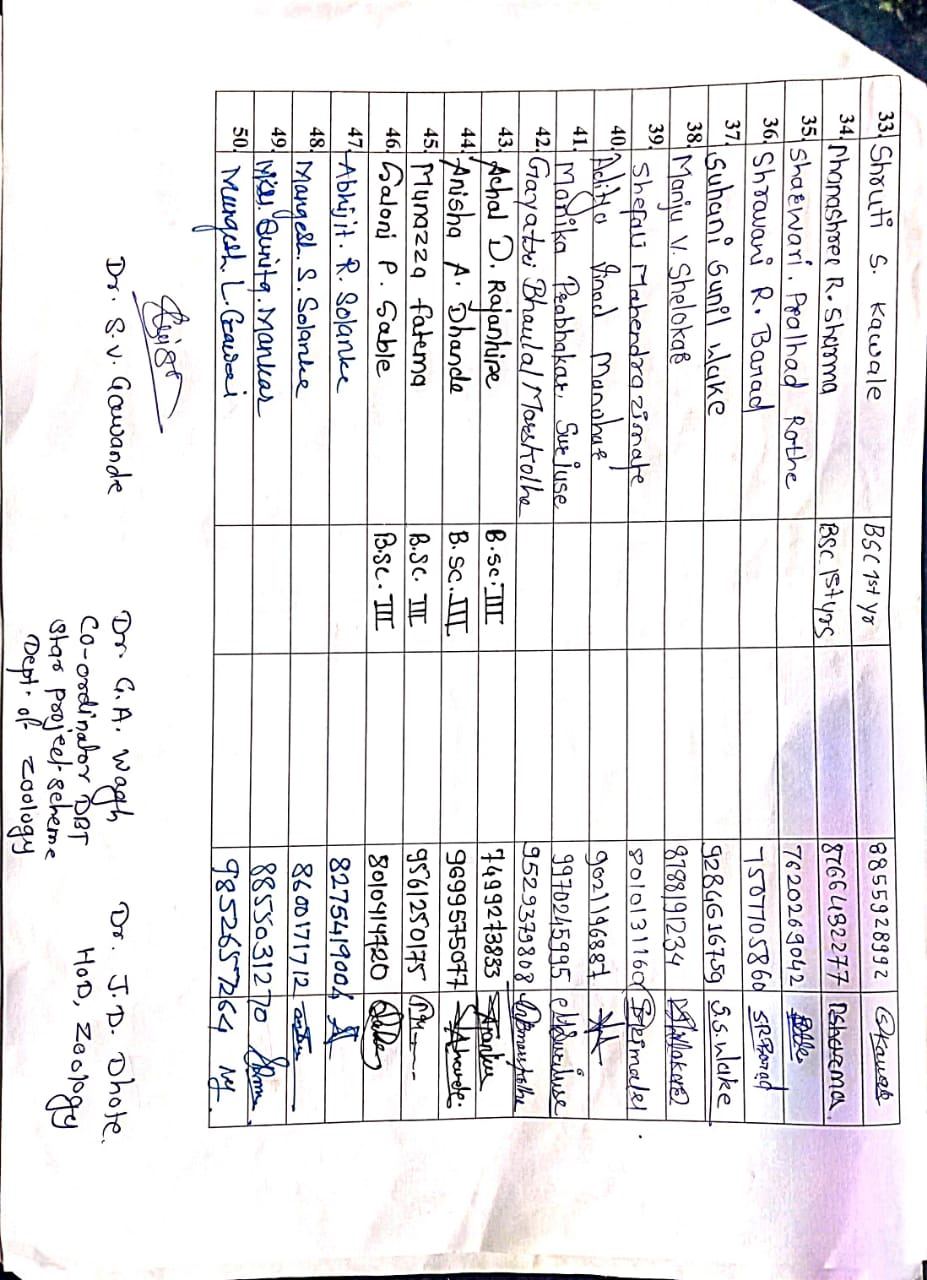 33. Shruti S. Kawale BSC 1st yr 8855928992
34. Dhanashree R. Sharma BSC 1st yrs 8766482277
35. Sharwari. Pralhad Rothe 7620269042
36. Shravani R. Barad 7507705860 S.R.Barad
37. Suhani Sunil Wake 9284616759 S.S.Wake
38. Manju V. Shelokar 8788191234
39. Shefali Mahendra Zimate 8010131160
40. Aditya Vinod Manohar 9021196887
41. Monika Prabhakar Surjuse 9970245995
42. Gayatri Bhaulal Maraskolhe 9529379808
43. Achal D. Rajanhire B.sc. III 7499273833
44. Anisha A. Dhande B.sc. III 9699575077
45. Munazza fatema B.Sc. III 9561250175
46. Saloni P. Sable B.Sc. III 8010414720
47. Abhijit. R. Solanke 8275419004
48. Mangesh. S. Solanke 8600171712
49. Mankar 8855031270
50. Mangesh. L. Gawai 9852657264
Dr. S. V. Gawande Dr. G. A. Wagh Dr. J. D. Dhote.
Co-ordinator DBT HOD, Zoology
Star project scheme
Dept. of Zoology